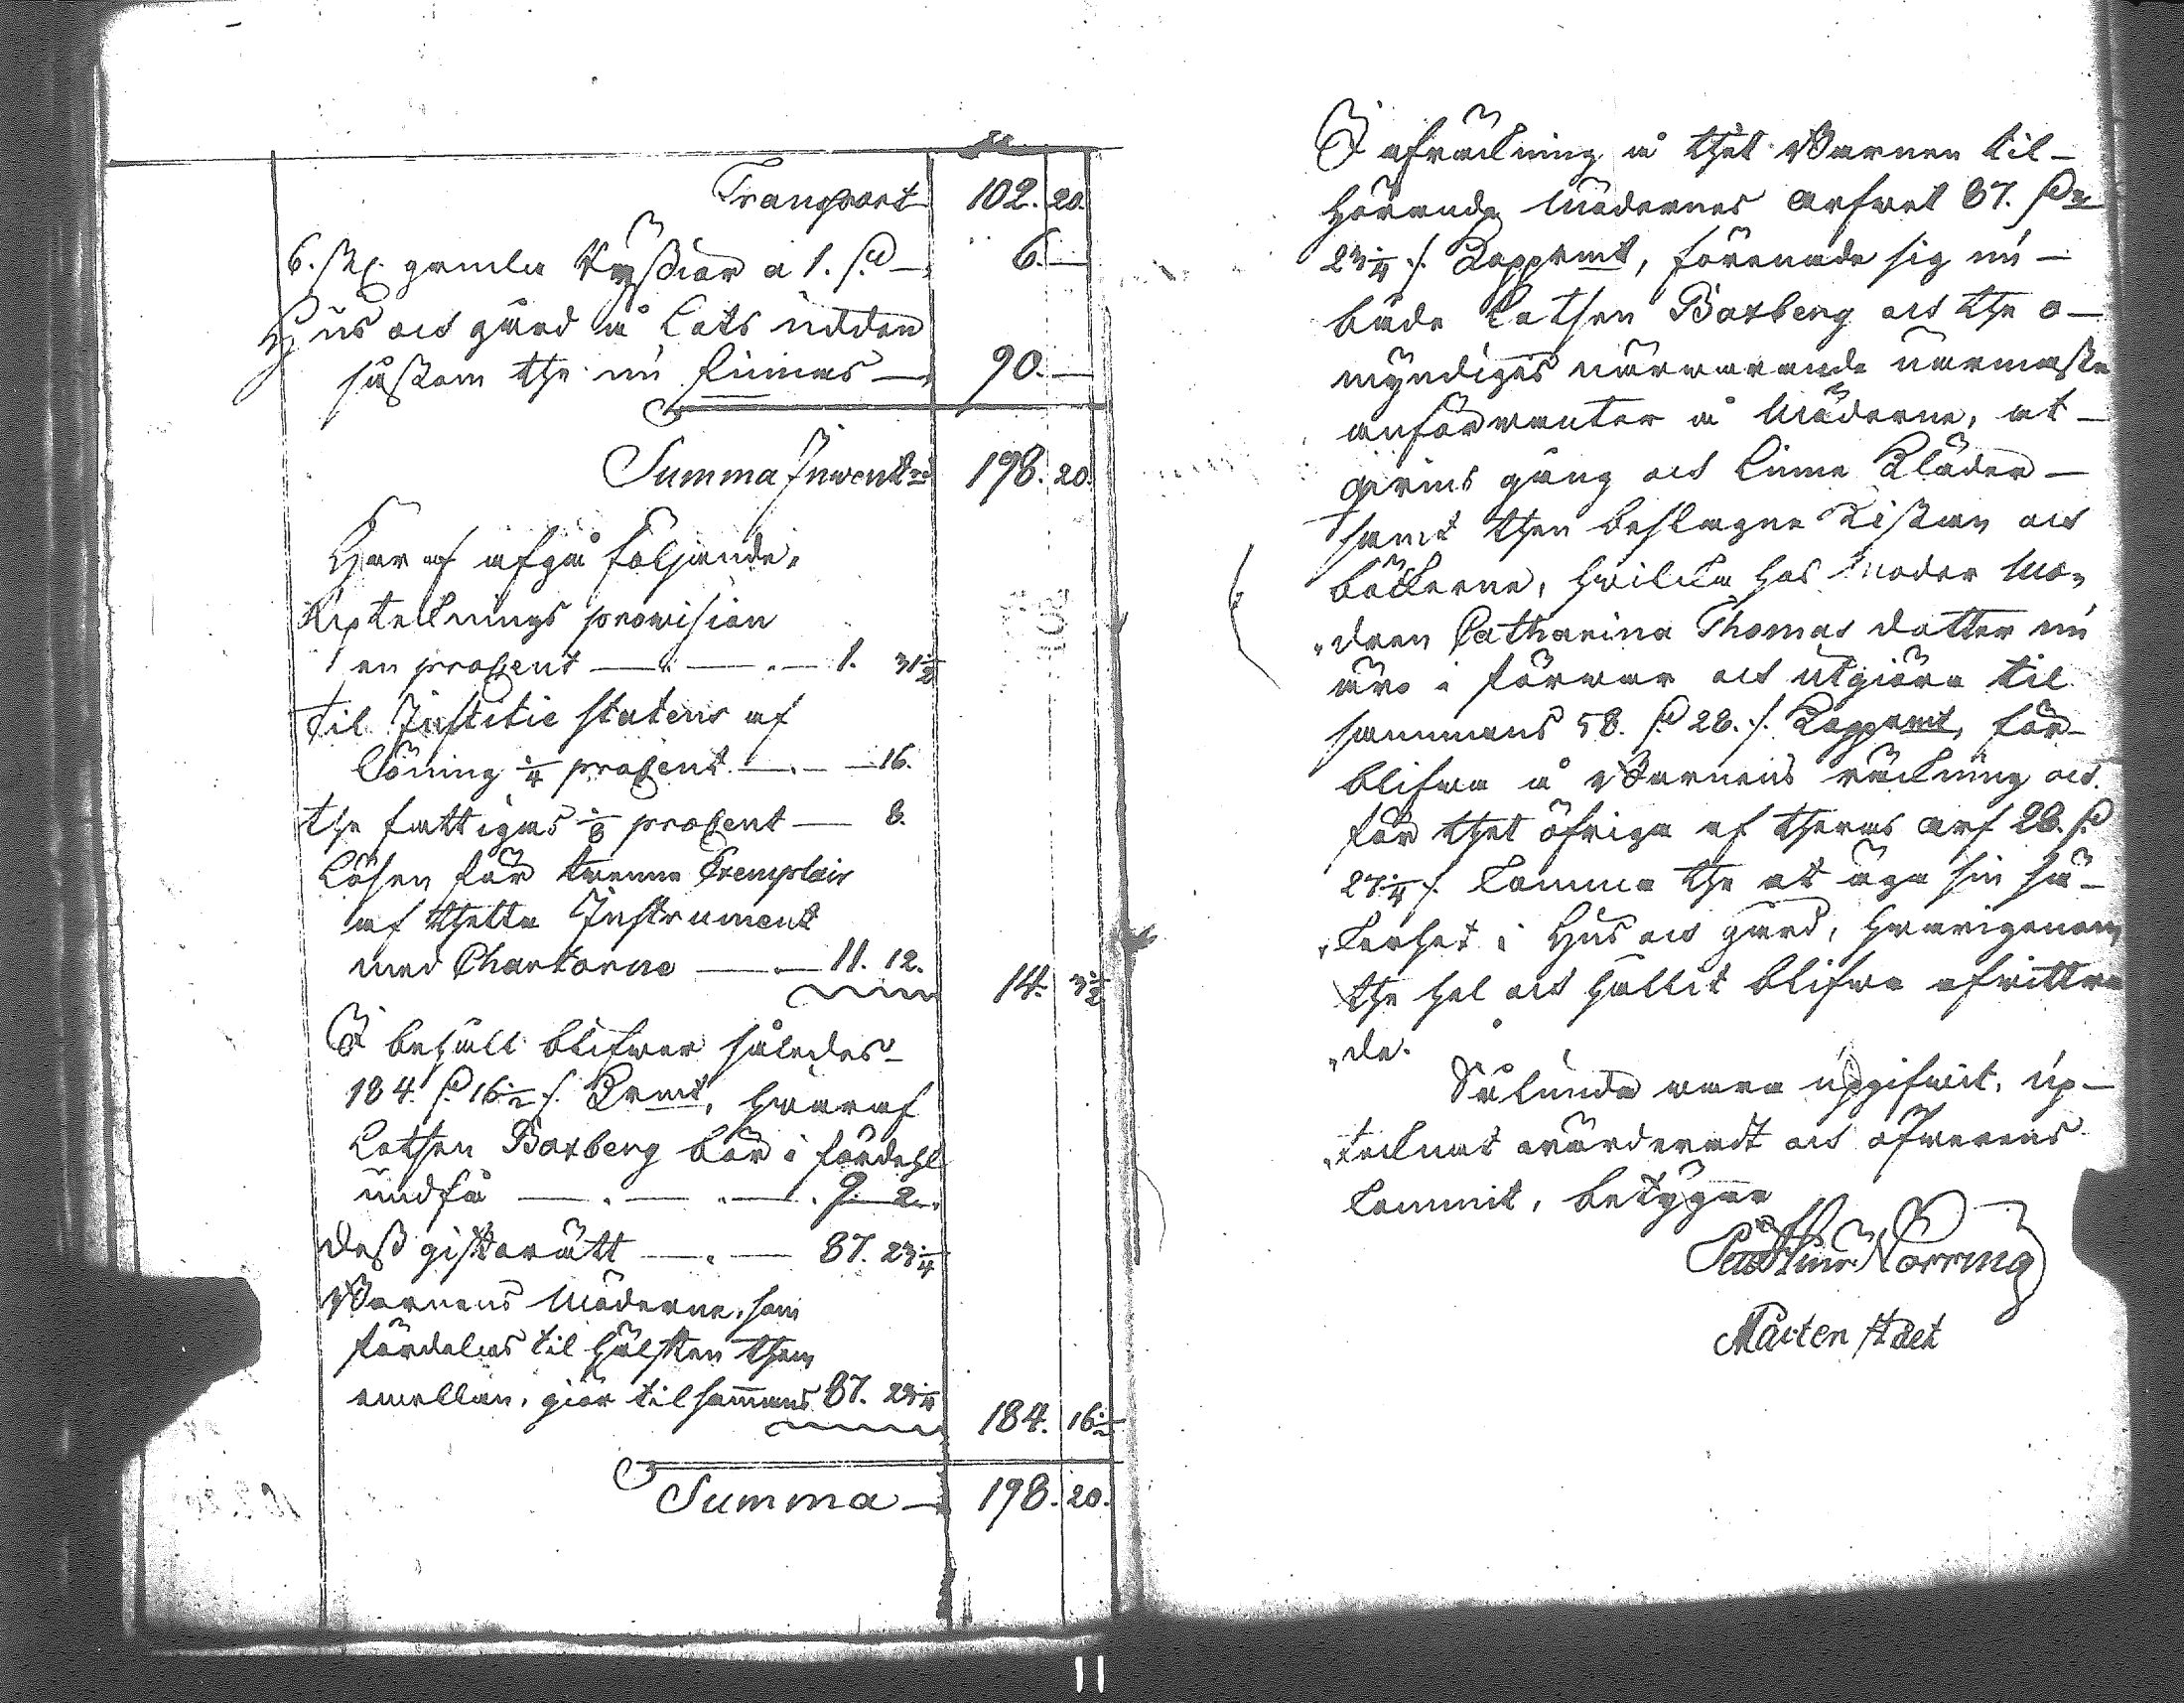 Transport 102. 20.
6. st. gamla Ryssior a 1. d. — 6. —
Hus och gård å Lots udden
såsom the nu finnas — 90. —
Summa Inwent: 198. 20.
Här af afgå följande.
Uptecknings provision
en procent — 1. 31 1/2
til Justitie statens af
löning 1/4 procent — 16.
the fattigas 1/8 procent — 8.
Lösen för trenne Exemplair
af thetta Instrument
med Chartorne — 11. 12.
14. 3 1/2
I behåll blifwer således
184. d. 16 1/2 s. Krmt, hwaraf
Lotsen Boxberg bör i fördehl
undfå — 9. 2.
dess giftorätt — 87. 23 1/4
Barnens Möderne, som
fördelas til hälften them
emellan, giör tilsammans 87. 23 1/4
184. 16 1/2
Summa — 198. 20.
I afräckning å thet Barnen til-
hörande Mödernes arfwet 87. d:r
23 1/4 s. Kopparmt, förenade sig nu
både Lotsen Boxberg och the o-
myndiges närwarande närmaste
anförwanter å Möderne, at
gång och Linne Kläder
samt then beslagne Kistan och
böckerne, hwilcka hos Moder Mo-
dren Catharina Thomas dotter nu
äro i förwar och utgiöra til
sammans 58. d. 28. s. Kopparmt, för-
blifwa å Barnens räckning och
för thet öfriga af theras arf 28. d.
27 1/4 s. komma the at äga sin sä-
kerhet i Hus och gård, hwarigenom
the hel och hållit blifwa afwittra
de.
Sålunda wara uppgifwit, up-
tecknat wärderadt och öfwerens
kommit, betygar
Norring
Mårten Stået
11